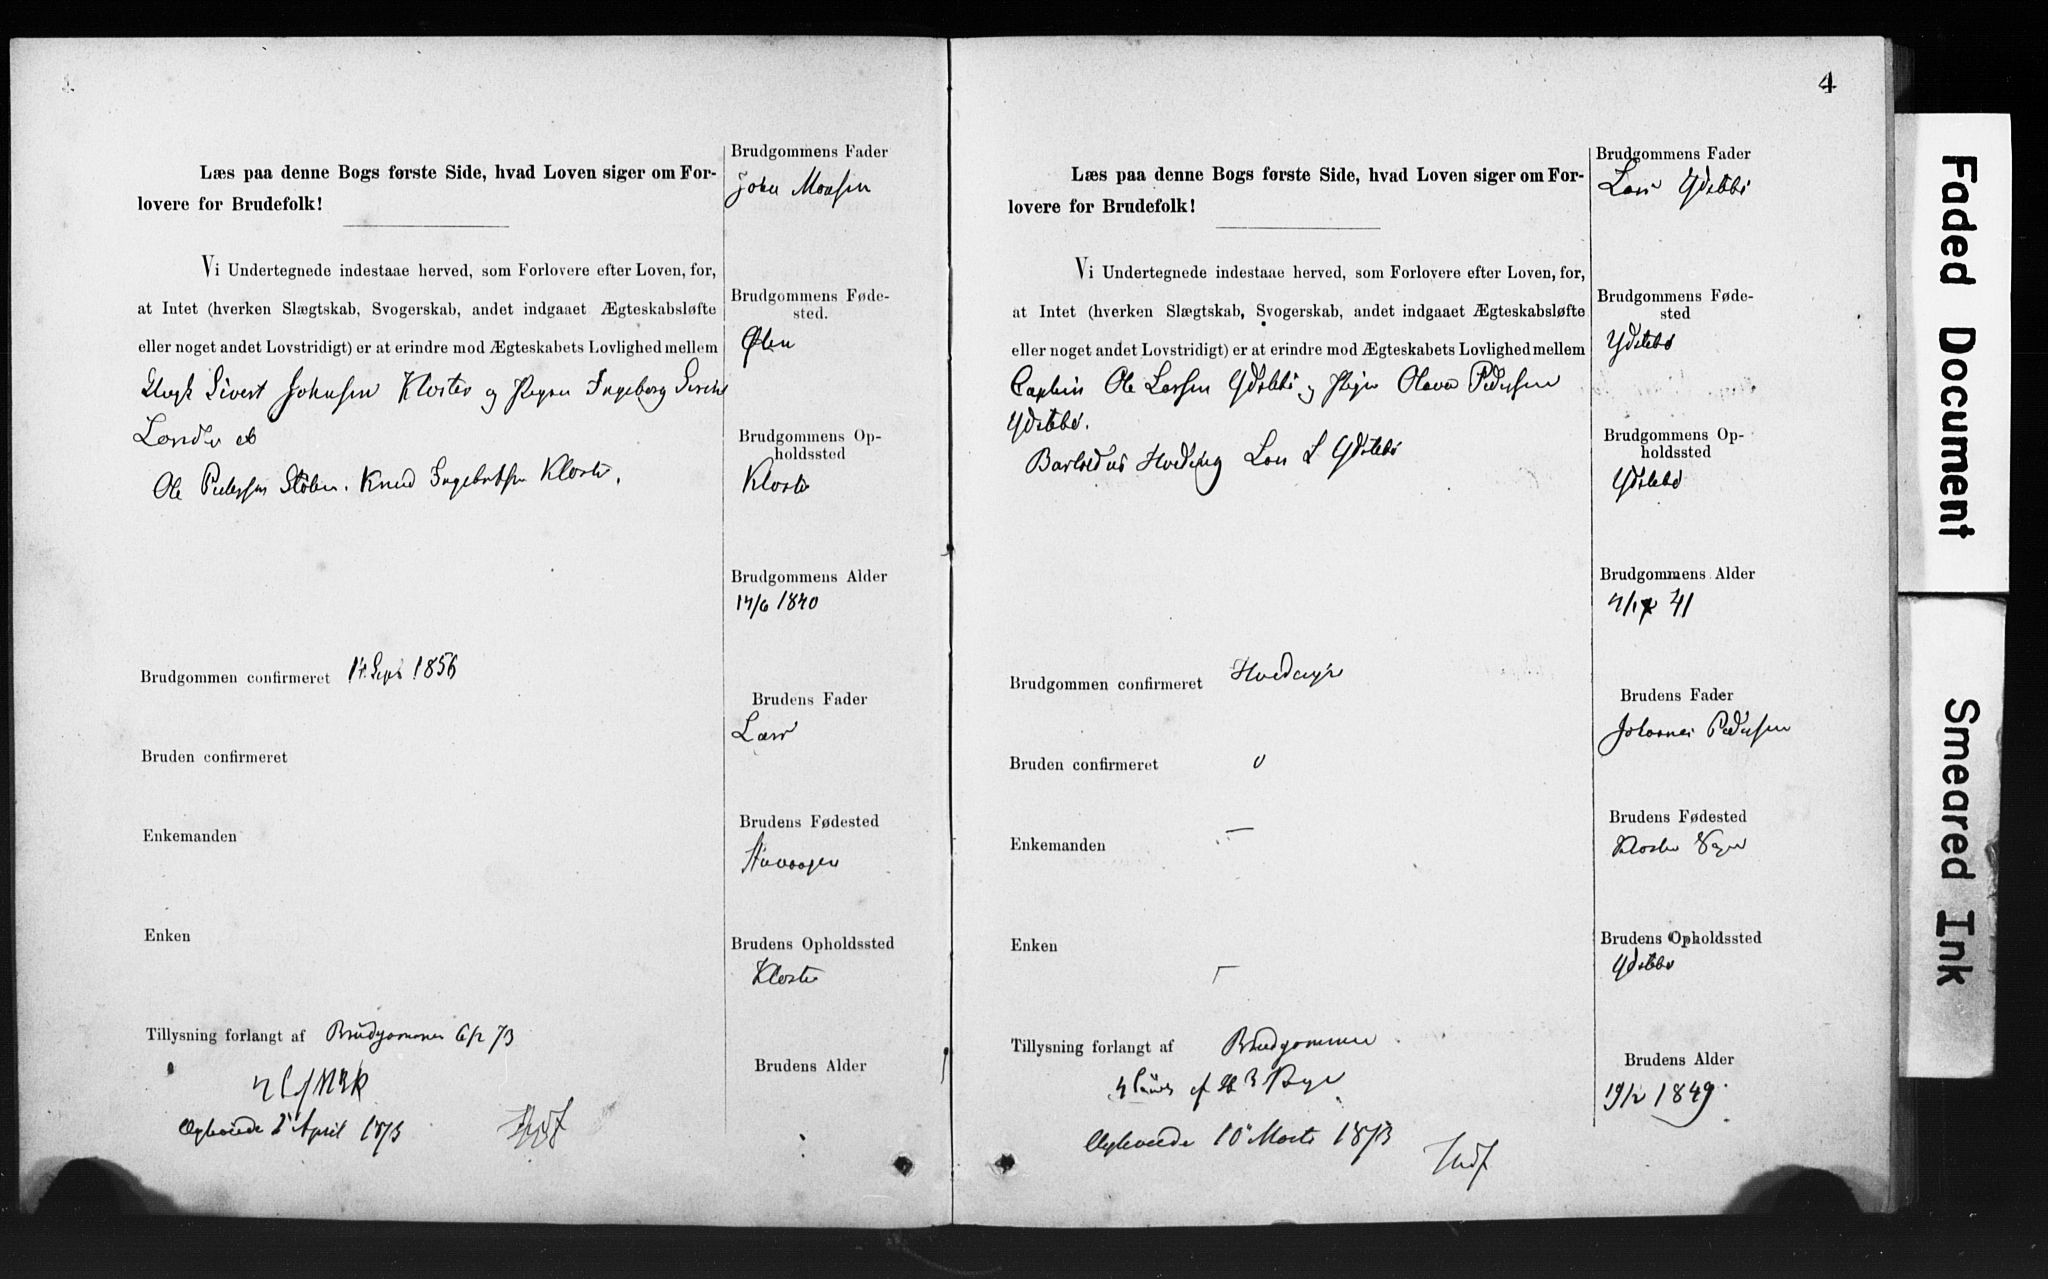 Læs paa denne Bogs første Side, hvad Loven siger om For-
lovere for Brudefolk!
Vi Undertegnede indestaae herved, som Forlovere efter Loven, for,
at Intet (hverken Slægtskab, Svogerskab, andet indgaaet Ægteskabsløfte
eller noget andet Lovstridigt) er at erindre mod Ægteskabets Lovlighed mellem
Sivert Johnsen Kloster og Pigen Ingeborg
Ole Pedersen Knud Ingebretsen Kloster.
Brudgommen confirmeret 14 Sept 1856
Bruden confirmeret
Enkemanden
Enken
Tillysning forlangt af Brudgommen 6/2 73
Ægteviede 2 April 1873
Brudgommens Fader
John Monsen
Brudgommens Føde-
sted.
Ølen
Brudgommens Op-
holdssted
Kloster
Brudgommens Alder
14/6 1840
Brudens Fader
Lars
Brudens Fødested
Brudens Opholdssted
Kloster
Brudens Alder
4
Læs paa denne Bogs første Side, hvad Loven siger om For-
lovere for Brudefolk!
Vi Undertegnede indestaae herved, som Forlovere efter Loven, for,
at Intet (hverken Slægtskab, Svogerskab, andet indgaaet Ægteskabsløfte
eller noget andet Lovstridigt) er at erindre mod Ægteskabets Lovlighed mellem
Captein Ole Larsen Ydstebø og Pige Olava Pedersen
Ydstebø.
Hveding Lars L Ydstebø
Brudgommen confirmeret
Bruden confirmeret
Enkemanden —
Enken —
Tillysning forlangt af Brudgommen
Ægteviede 10 Marts 1873
Brudgommens Fader
Lars Ydstebø
Brudgommens Føde-
sted
Ydstebø
Brudgommens Op-
holdssted
Ydstebø
Brudgommens Alder
41
Brudens Fader
Johannes Pedersen
Brudens Fødested
Kloster
Brudens Opholdssted
Ydstebø
Brudens Alder
19/2 1849.
Faded Document
Smeared Ink